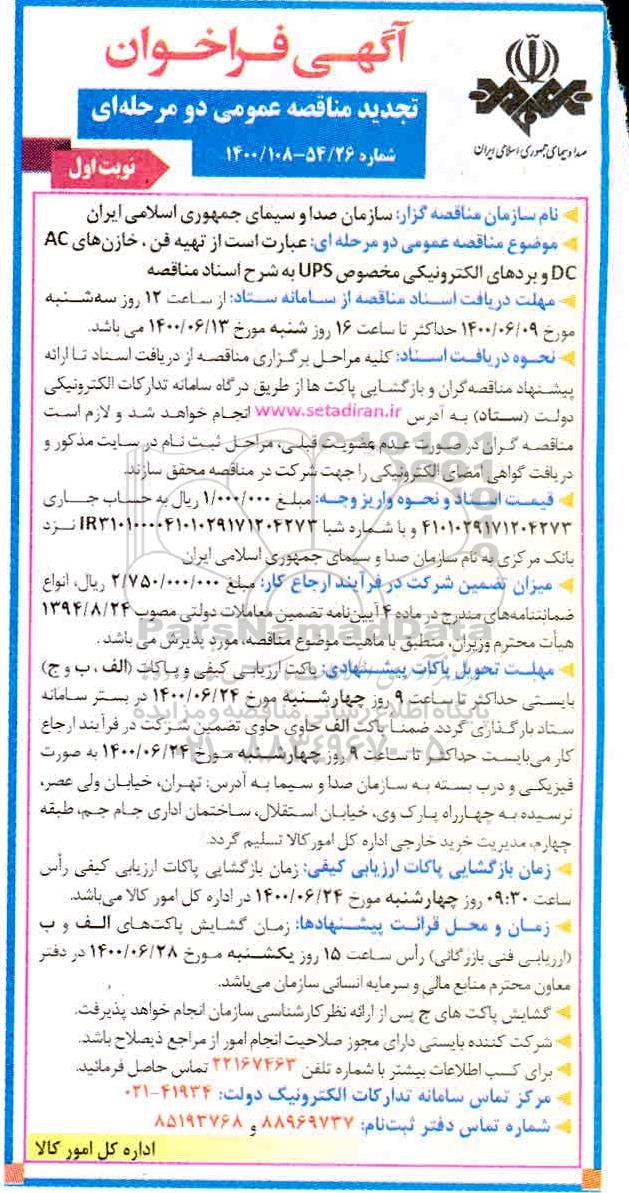 آگهی فراخوان
تجدید مناقصه عمومی دو مرحله‌ای
شماره ۵۴/۲۶-۱۴۰۰/۱۰۸
نوبت اول
صدا و سیمای جمهوری اسلامی ایران
نام سازمان مناقصه گزار: سازمان صدا و سیمای جمهوری اسلامی ایران
موضوع مناقصه عمومی دو مرحله ای: عبارت است از تهیه فن ، خازن‌های AC
DC و بردهای الکترونیکی مخصوص UPS به شرح اسناد مناقصه
مهلت دریافت اسناد مناقصه از سامانه ستاد: از ساعت ۱۲ روز سه‌شنبه
مورخ ۱۴۰۰/۰۶/۰۹ حداکثر تا ساعت ۱۶ روز شنبه مورخ ۱۴۰۰/۰۶/۱۳ می باشد.
نحوه دریافت اسناد: کلیه مراحل برگزاری مناقصه از دریافت اسناد تا ارائه
پیشنهاد مناقصه‌گران و بازگشایی پاکت ها از طریق درگاه سامانه تدارکات الکترونیکی
دولت (ستاد) به آدرس www.setadiran.ir انجام خواهد شد و لازم است
مناقصه گران در صورت عدم عضویت قبلی، مراحل ثبت نام در سایت مذکور و
دریافت گواهی امضای الکترونیکی را جهت شرکت در مناقصه محقق سازند.
قیمت اسناد و نحوه واریز وجه: مبلغ ۱/۰۰۰/۰۰۰ ریال به حساب جاری
۴۱۰۱۰۲۹۱۷۱۲۰۴۲۷۳ و با شماره شبا IR۳۱۰۱۰۰۰۰۴۱۰۱۰۲۹۱۷۱۲۰۴۲۷۳ نزد
بانک مرکزی به نام سازمان صدا و سیمای جمهوری اسلامی ایران
میزان تضمین شرکت در فرآیند ارجاع کار: مبلغ ۲/۷۵۰/۰۰۰/۰۰۰ ریال، انواع
ضمانتنامه‌های مندرج در ماده ۴ آیین‌نامه تضمین معاملات دولتی مصوب ۱۳۹۴/۸/۲۴
هیأت محترم وزیران، منطبق با ماهیت موضوع مناقصه، مورد پذیرش می باشد .
مهلت تحویل پاکات پیشنهادی: پاکت ارزیابی کیفی و پاکات (الف ، ب و ج)
بایستی حداکثر تا ساعت ۹ روز چهارشنبه مورخ ۱۴۰۰/۰۶/۲۴ در بستر سامانه
ستاد بارگذاری گردد. ضمناً پاکت الف حاوی حاوی تضمین شرکت در فرآیند ارجاع
کار می‌بایست حداکثر تا ساعت ۹ روز چهارشنبه مورخ ۱۴۰۰/۰۶/۲۴ به صورت
فیزیکی و درب بسته به سازمان صدا و سیما به آدرس: تهران، خیابان ولی عصر،
نرسیده به چهارراه پارک وی، خیابان استقلال، ساختمان اداری جام جم، طبقه
چهارم، مدیریت خرید خارجی اداره کل امور کالا تسلیم گردد.
زمان بازگشایی پاکات ارزیابی کیفی: زمان بازگشایی پاکات ارزیابی کیفی رأس
ساعت ۰۹:۳۰ روز چهارشنبه مورخ ۱۴۰۰/۰۶/۲۴ در اداره کل امور کالا می‌باشد.
زمان و محل قرائت پیشنهادها: زمان گشایش پاکت‌های الف و ب
(ارزیابی فنی بازرگانی) رأس ساعت ۱۵ روز یکشنبه مورخ ۱۴۰۰/۰۶/۲۸ در دفتر
معاون محترم منابع مالی و سرمایه انسانی سازمان می‌باشد.
گشایش پاکت های ج پس از ارائه نظر کارشناسی سازمان انجام خواهد پذیرفت.
شرکت کننده بایستی دارای مجوز صلاحیت انجام امور از مراجع ذیصلاح باشد.
برای کسب اطلاعات بیشتر با شماره تلفن ۲۲۱۶۷۴۶۳ تماس حاصل فرمائید.
مرکز تماس سامانه تدارکات الکترونیک دولت: ۴۱۹۳۴-۰۲۱
شماره تماس دفتر ثبت‌نام: ۸۸۹۶۹۷۳۷ و ۸۵۱۹۳۷۶۸
اداره کل امور کالا